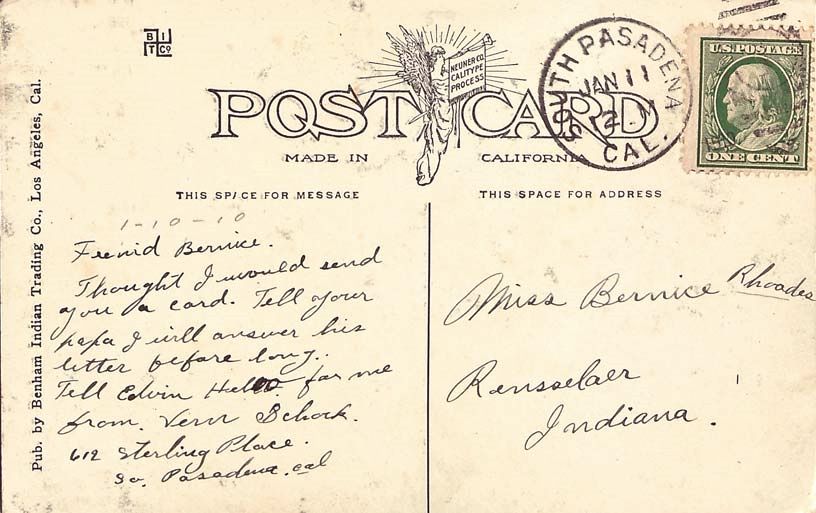 B I
T Co
NEUNER CO.
CALITYPE
PROCESS
POST CARD
MADE IN CALIFORNIA
SOUTH PASADENA
JAN 11
12 M
CAL.
U.S. POSTAGE
ONE CENT
THIS SPACE FOR MESSAGE
THIS SPACE FOR ADDRESS
Pub. by Benham Indian Trading Co., Los Angeles, Cal.
1-10-10
Freind Bernice.
Thought I would send
you a card. Tell your
papa I will answer his
letter before long..
Tell Edvin Hello for me
from. Vern Schock.
612 Sterling Place.
So. Pasadena. cal
Miss Bernice Rhoades
Rensselaer
Indiana.